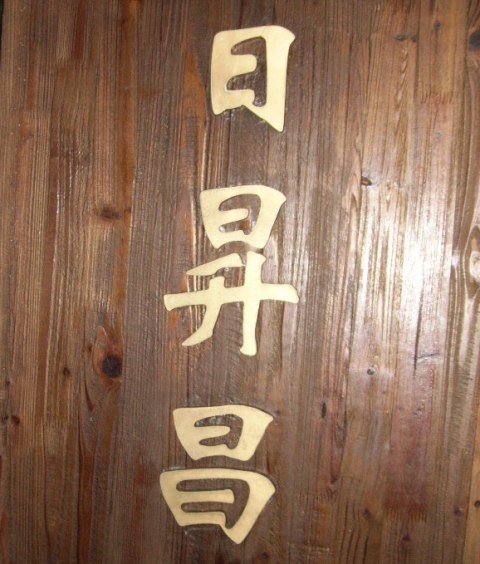 日昇昌